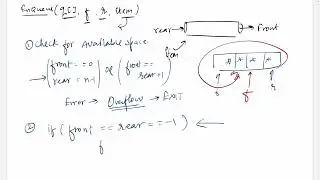 Enqueue(q[], f, r, item)
rear → Front
① Check for Available space
(front == 0 rear = n-1) or (front == rear+1)
Error → Overflow → EXIT
② if (front == rear == -1) ←
f
f r